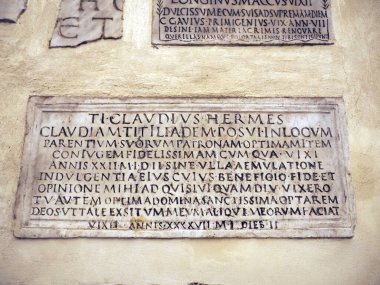 LONGINVS MACCVS VIXIT
DVLCISSIME CVM SVIS AD SVPREMA DIEM
C GAVIVS PRIMIGENIVS VIX ANN VII
DESINE IAM MATER LACRIMIS RENOVARE
QVERELLAS NAMQVE DOLOR TALIS NON TIBI
TI CLAVDIVS HERMES
CLAVDIAM TITILIADEM POSVI IN LOCVM
PARENTIVM SVORVM PATRONAM OPTIMAM ITEM
CONIVGEM FIDELISSIMAM CVM QVA VIXI
ANNIS XXII M II D II SINE VLLA AEMVLATIONE
INDVLGENTIA EIVS CVIVS BENEFICIO FIDE ET
OPINIONE MIHI ADQVISIVI QVAM DIV VIXERO
TV AVTEM OPTIMA DOMINA SANCTISSIMA OPTAREM
DEOS VT TALE EXSITVM MEVM ALIQVI MEORVM FACIAT
VIXIT ANNIS XXXXVII M I DIEB II